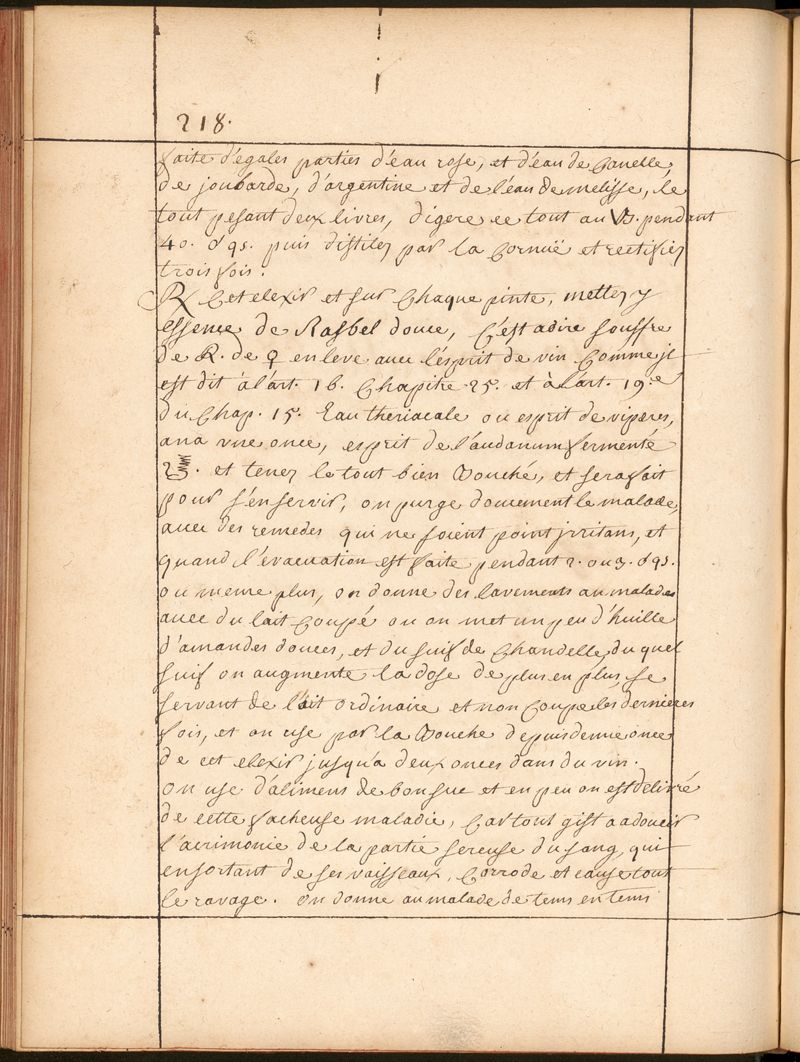 218.
faite d'egales parties d'eau rose, et d'eau de Canelle
de joubarde, d'argentine et de l'eau de melisse, le
tout pesant deux livres, digere ce tout au VB. pendant
40. d 9s. puis distilez par la Cornuë et rectifiez
trois fois.
R Cet elexir et sur Chaque pinte, mettez y
essence de Rasbel douce, C'est adire souffre
de R. de ♀ enleve avec l'esprit de vin Comme jl
est dit à l'art. 16. Chapitre 25. et à l'art. 19.e
du Chap. 15. Eau theriacale ou esprit de viperes,
ana une once, esprit de l'audanum fermenté
et tenez le tout bien Bouché, et sera fait
pour s'en servir, on purge doucement le malade,
avec des remedes qui ne soient point jrritans, et
quand l'évacuation est faite pendant 2. ou 3. d 9s.
ou meme plus, on donne des lavements au malades
avec du lait Coupé ou on met un peu d'huille
d'amandes douces, et du suif de Chandelle, du quel
suif on augmente la dose de plus en plus, se
servant de lait ordinaire et non Coupé les dernieres
fois, et on use par la Bouche depuis demie once
de cet elexir jusqu'a deux onces dans du vin.
on use d'alimens de bon suc et en peu on est délivré
de cette facheuse maladie, Car tout gist a adoucir
l'acrimonie de la partie sereuse du sang, qui
en sortant de ses vaisseaux, Corrode et cause tout
le ravage. on donne au malade de tems en tems